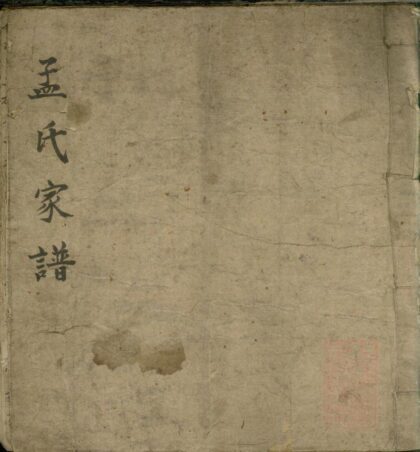 孟氏家譜